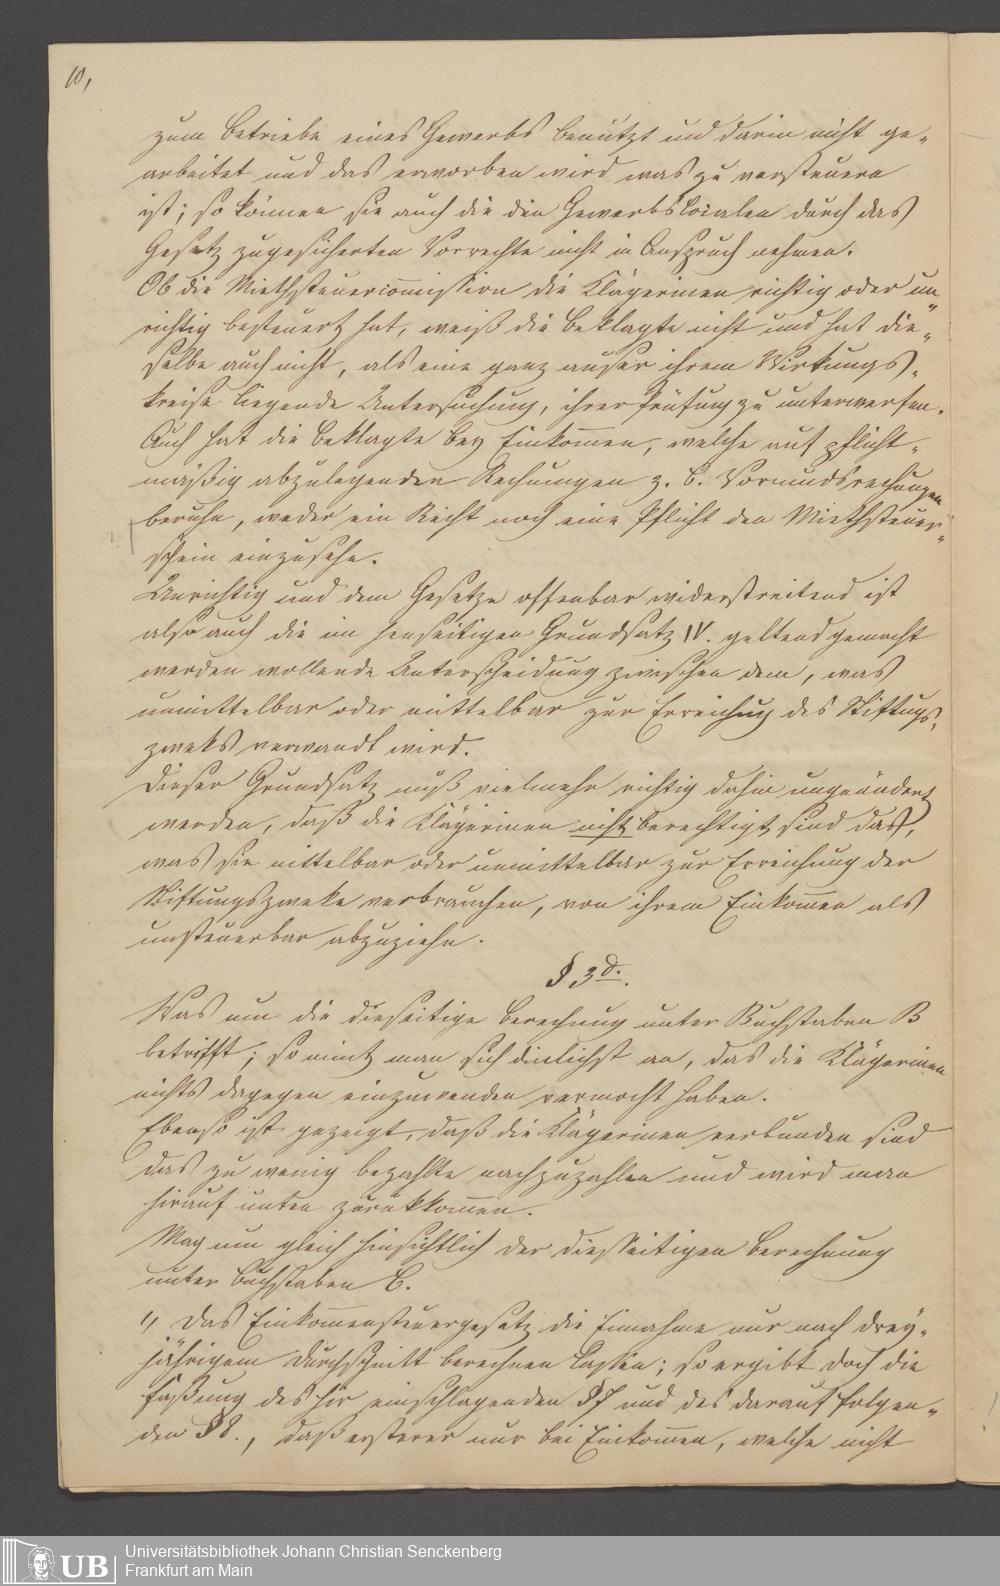 10,
zum Betriebe eines Gewerbs benutzt und darin nicht ge-
arbeitet und das erworben wird was zu versteuern
ist; so können sie auch die den Gewerbslocalen durch das
Gesetz zugesicherten Vorrechte nicht in Anspruch nehmen.
Ob die Miethsteuercom̅ission die Klägerinen richtig oder un-
richtig besteuert hat, weiß die Beklagte nicht und hat die-
selbe auch nicht, als eine ganz auser ihrem Wirkungs-
kreise liegende Untersuchung, ihrer Prüfung zu unterwerfen.
Auch hat die Beklagte bey Einkom̅en, welche auf pflicht-
mäßig abzulegenden Rechnungen z. B. Vormundsrechnungen
beruhn, weder ein Recht noch eine Pflicht den Miethsteuer-
schein einzusehn.
Unrichtig und dem Gesetze offenbar widerstreitend ist
also auch die im jenseitigen Grundsatz IV. geltend gemacht
werden wollende Unterscheidung zwischen dem, was
unmittelbar oder mittelbar zur Erreichung des Stiftungs-
zweks verwandt wird.
Dieser Grundsatz muß vielmehr richtig dahin umgeändert
werden, daß die Klägerinen nicht berechtigt sind das,
was sie mittelbar oder unmittelbar zur Erreichung der
Stiftungszweke verbrauchen, von ihrem Einkom̅en als
unsteuerbar abzuziehn.
§ 3d.
Was nun die dieseitige Berechnung unter Buchstaben B
betrifft; so nimt man sich dienlichst an, das die Klägerinen
nichts dagegen einzuwenden vermocht haben.
Ebenso ist gezeigt, daß die Klägerinen verbunden sind
das zu wenig bezahlte nachzuzahlen und wird man
hierauf unten zurükkom̅en.
Mag nun gleich hinsichtlich der diesseitigen Berechnung
unter Buchstaben C.
1, Das Einkom̅ensteuergesetz die Einnahme nur nach drey-
jährigem Durchschnitt berechnen lassen; so ergibt doch die
Faßung des hier einschlagenden § 7 und des darauf folgen-
den § 8., daß ersterer nur bei Einkom̅en, welche nicht
UB
Universitätsbibliothek Johann Christian Senckenberg
Frankfurt am Main